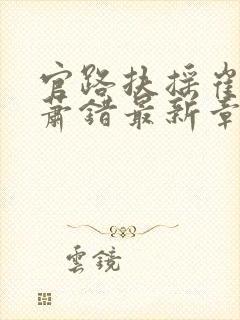 官路扶摇崔
萧错最新章
雲鏡